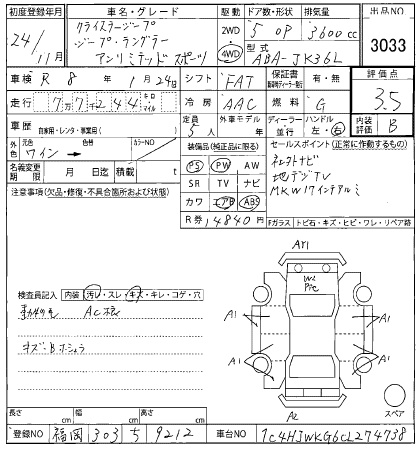 初度登録年月
車名・グレード
駆動
ドア数・形状
排気量
出品NO
24/11月
クライスラージープ
ジープ・ラングラー
アンリミテッドスポーツ
2WD
4WD
5 OP
3600cc
型式
ABA-JK36L
3033
車検 R8年1月24日
シフト
FAT
保証書
有・無
評価点
3.5
走行 77244
キロ
マイル
冷房
AAC
燃料
G
車歴 自家用・レンタ・事業用( )
定員
5人
外車モデル
年
ディーラー
並行
ハンドル
左・右
内装評価
B
外色
元色
ワイン
色替
カラーNO
装備品(純正品に限る)
セールスポイント(正常に作動するもの)
PS PW AW
SR TV ナビ
カワ エアB ABS
名義変更期限
月 日迄
積載 t
地デジTV
MKW17インチアルミ
R券 14840円
注意事項(欠品・修復・不具合箇所および状態)
Fガラス トビ石・キズ・ヒビ・ワレ・リペア跡
AY1
A1
A1
A1
A1
A2
スペア
検査員記入
内装 汚レ・スレ・キズ・キレ・コゲ・穴
長さ cm
幅 cm
高さ cm
登録NO 福岡 303 ち 9212
車台NO 1C4HJWKG6CL274738